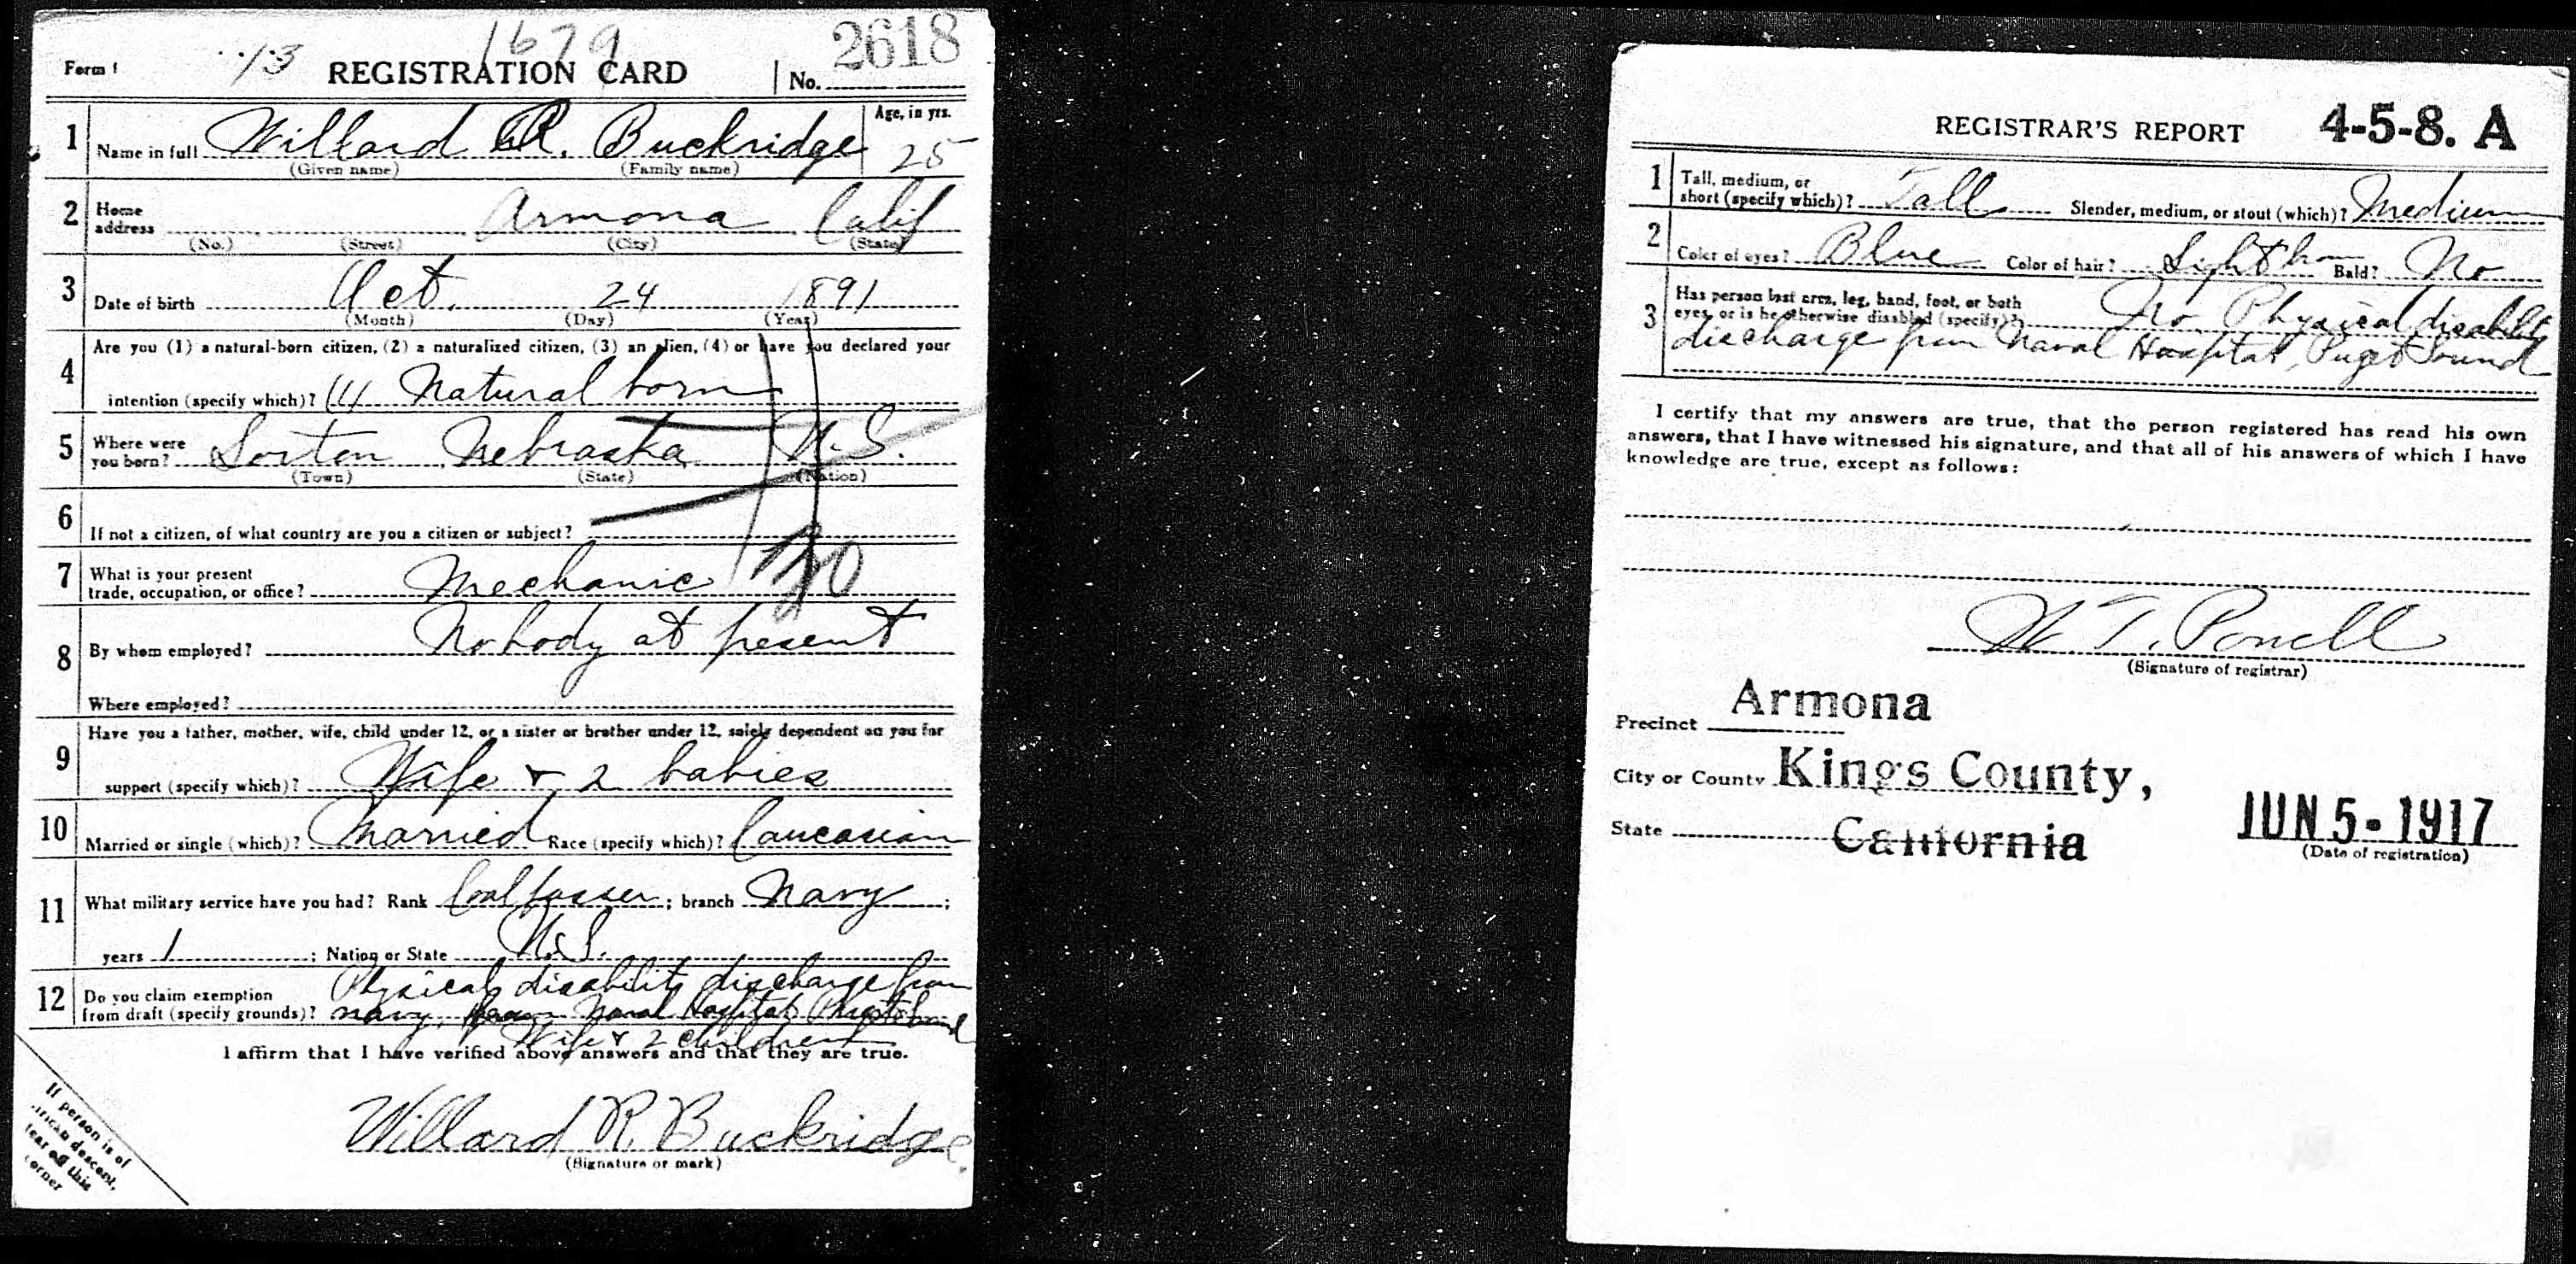 1679
Form 1 13 REGISTRATION CARD No. 2618
1 Name in full Willard R. Buckridge Age, in yrs. 25
(Given name) (Family name)
2 Home address Armona Calif
(No.) (Street) (City) (State)
3 Date of birth Oct. 24 1891
(Month) (Day) (Year)
4 Are you (1) a natural-born citizen, (2) a naturalized citizen, (3) an alien, (4) or have you declared your
intention (specify which)? (1) Natural born
5 Where were you born? Nebraska U.S.
(Town) (State) (Nation)
6 If not a citizen, of what country are you a citizen or subject?
7 What is your present trade, occupation, or office? Mechanic
8 By whom employed? Nobody at present
Where employed?
9 Have you a father, mother, wife, child under 12, or a sister or brother under 12, solely dependent on you for
support (specify which)? Wife & 2 babies
10 Married or single (which)? Married Race (specify which)? Caucasian
11 What military service have you had? Rank Coal passer ; branch Navy ;
years 1 ; Nation or State U.S.
12 Do you claim exemption from draft (specify grounds)? Physical disability discharge from
navy, Naval Hospital Puget Sound
Wife & 2 children
I affirm that I have verified above answers and that they are true.
Willard R. Buckridge.
(Signature or mark)
If person is of
African descent,
tear off this
corner
REGISTRAR'S REPORT 4-5-8. A
1 Tall, medium, or short (specify which)? Tall Slender, medium, or stout (which)? Medium
2 Color of eyes? Blue Color of hair? Light Bald? No
3 Has person lost arm, leg, hand, foot, or both
eyes, or is he otherwise disabled (specify)? No Physical disability
discharge from Naval Hospital, Puget Sound
I certify that my answers are true, that the person registered has read his own
answers, that I have witnessed his signature, and that all of his answers of which I have
knowledge are true, except as follows:
W T. Powell
(Signature of registrar)
Precinct Armona
City or County Kings County,
State California
JUN 5 - 1917
(Date of registration)